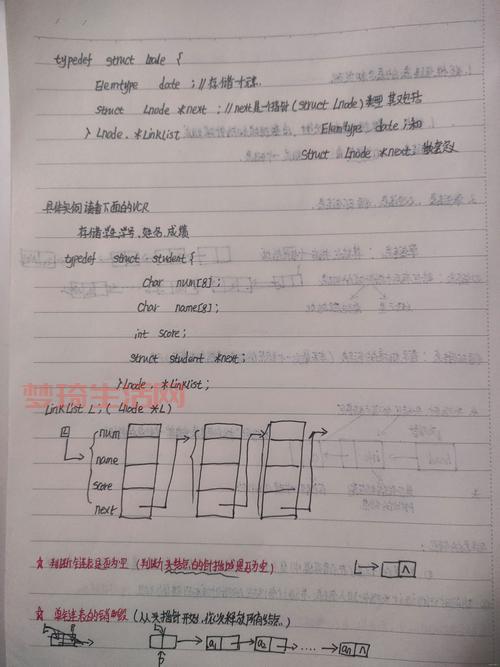 typedef struct Lnode {
Elemtype date ; //存储
struct Lnode *next ; //next是一个指针(struct Lnode)类型 其又包括
} Lnode, *LinkList Elemtype date ; 和
struct Lnode *next; 嵌套定义
具体实例 请看下面的VCR
存储学生学号、姓名、成绩
typedef struct student {
char num[8] ;
char name[8] ;
int score ;
struct student *next ;
} Lnode, *LinkList ;
梦琦生活网
LinkList L ; ( Lnode *L )
L
num
name
score
next
☆ 判断链表是否为空 (判断头结点的指针域是否为空) L ∧
☆ 单链表的销毁 (从头指针开始,依次释放所有结点)
L
p
a1 a2 ...... an ∧